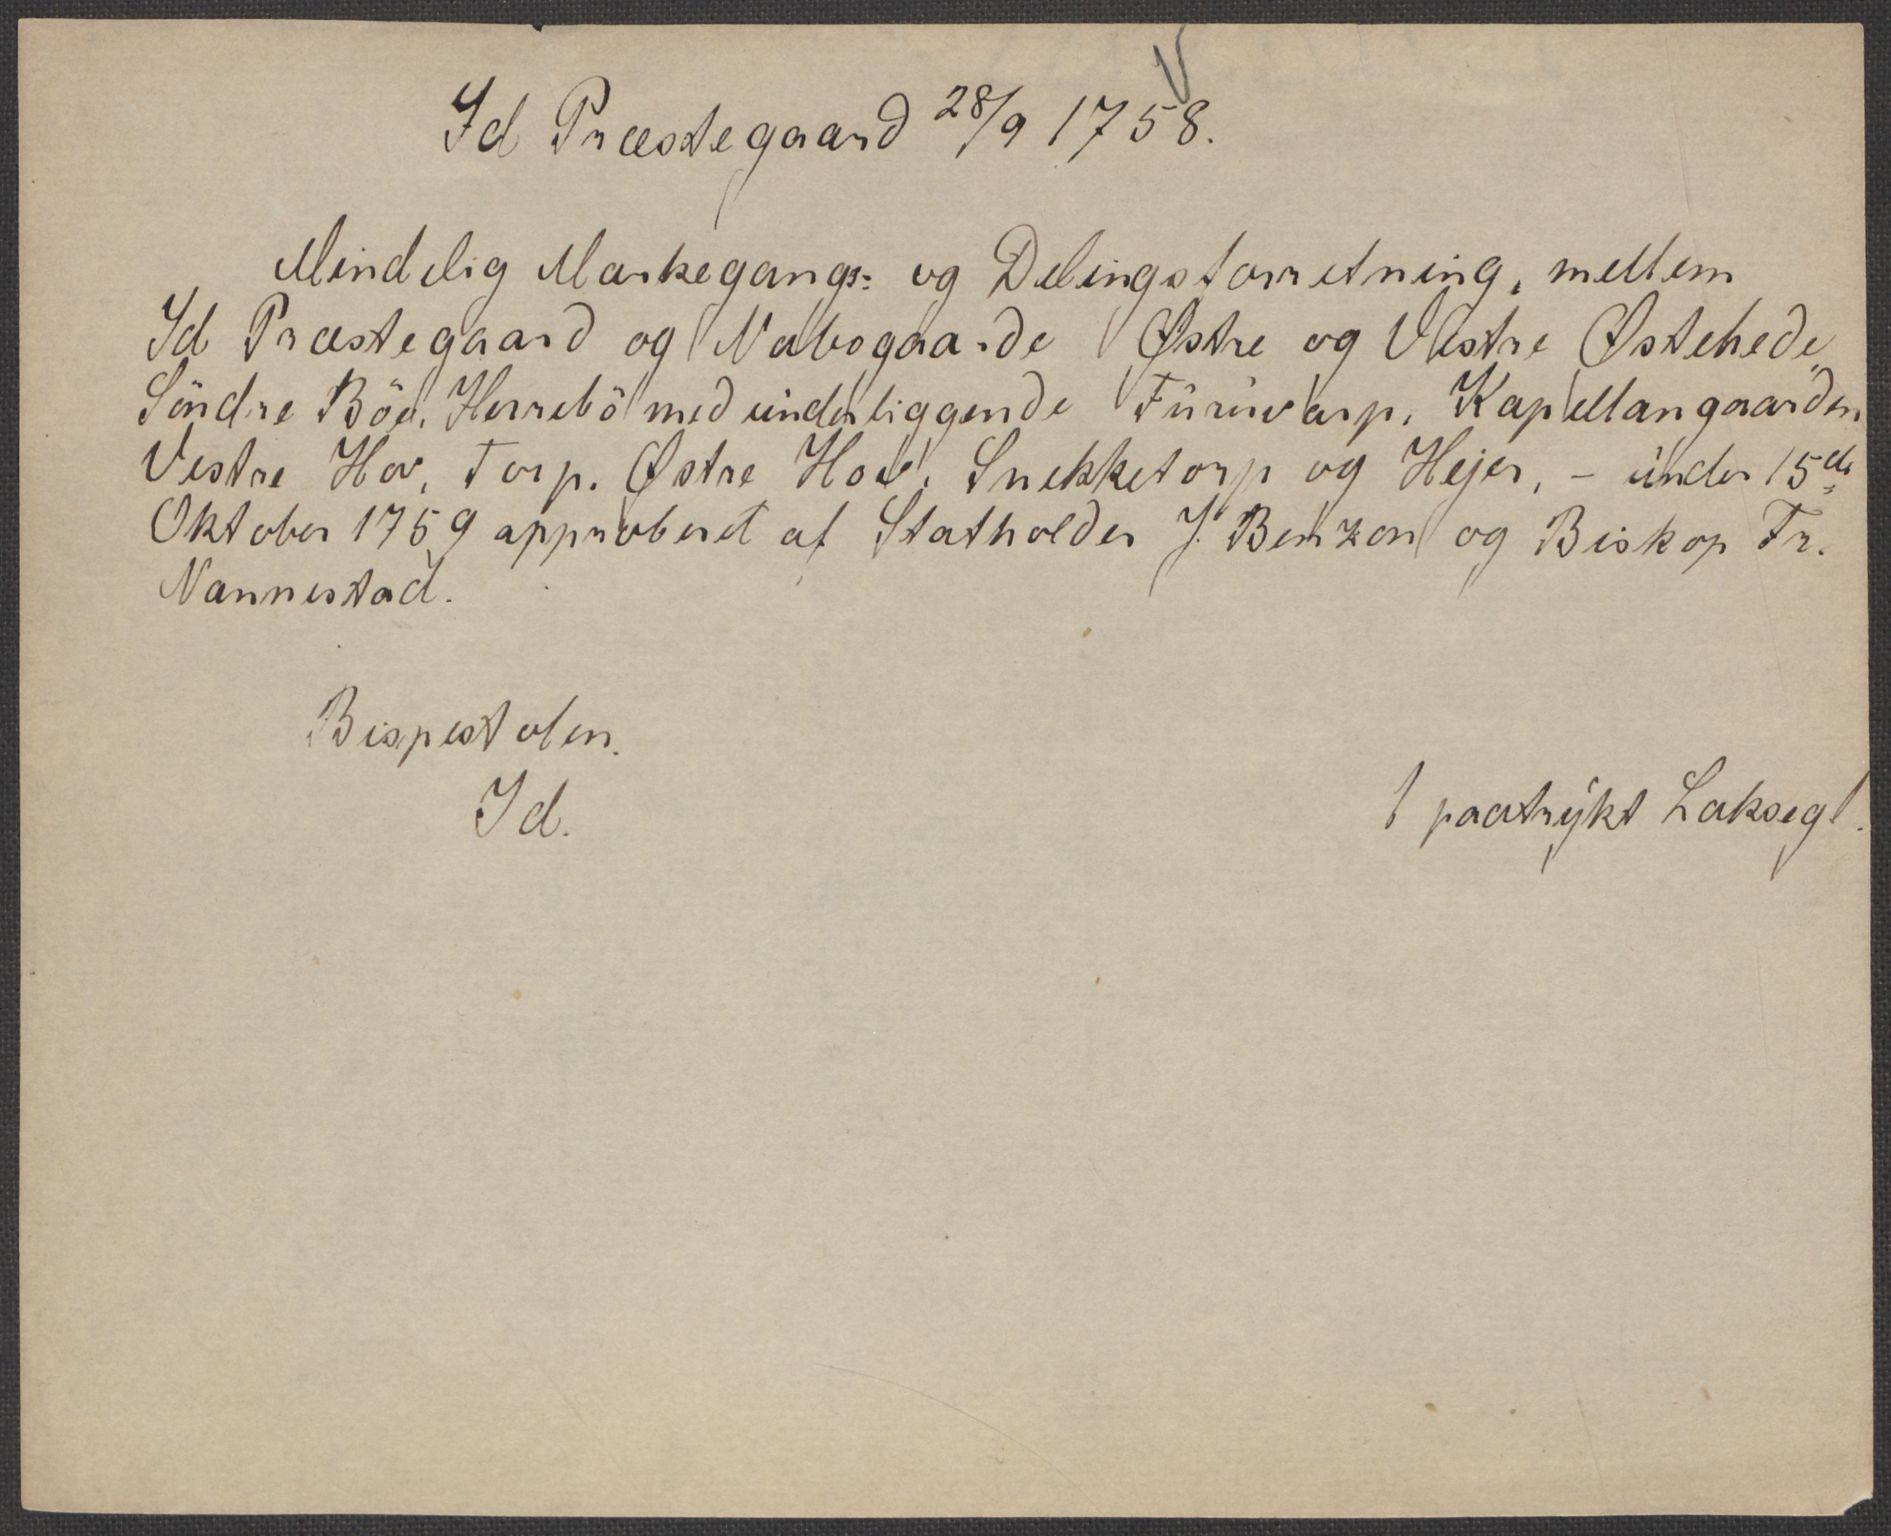 Id Præstegaard 28/9 1758.
Mindelig Markegangs- og Delingsforretning, mellem
Id Præstegaard og Nabogaarde Østre og Vestre Østehede,
Söndre Böe, Herrebö med underliggende Furuvarp, Kapellangaarden
Vestre Hov, Torp, Østre Hov, Snekketorp og Hejer, - under 15de
Oktober 1759 approberet af Statholder J. Benzon og Biskop Fr.
Nannestad.
Bispestolen.
Id.
1 paatrykt Laksegl.